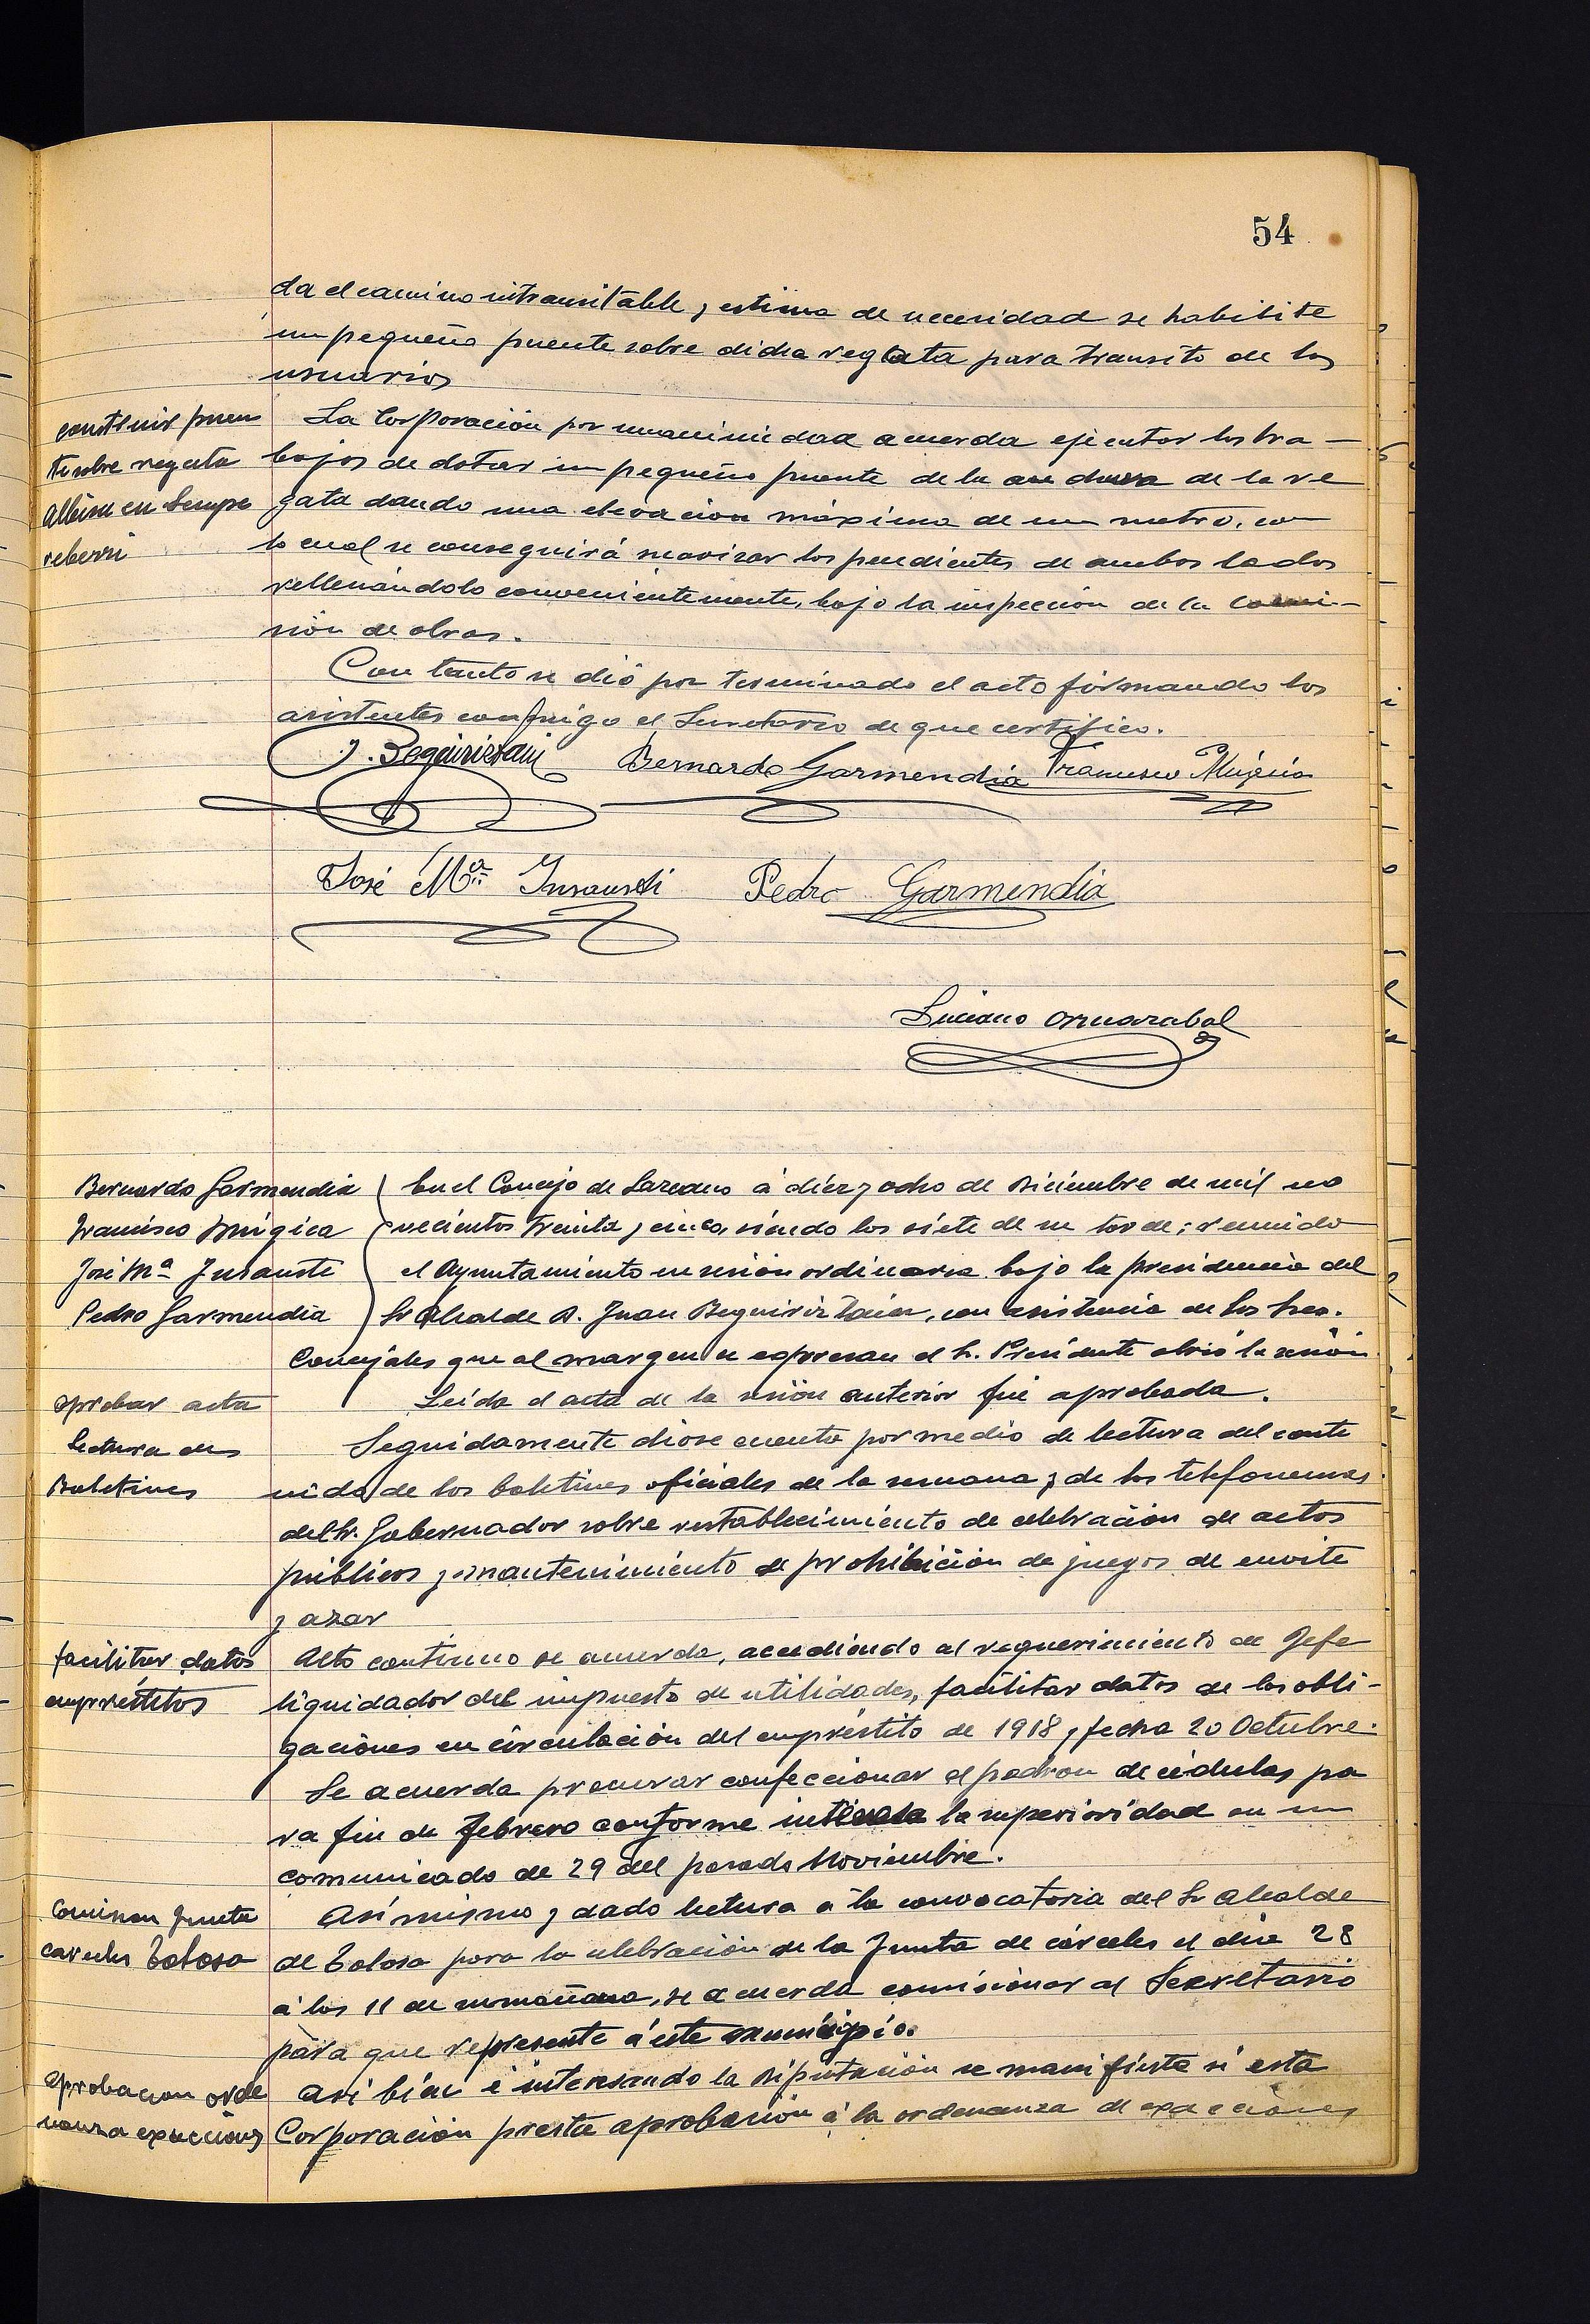 54
da el camino intransitable, estima de necesidad se habilite
un pequeño puente sobre dicha regata para transito de los
usuarios
construir puen
te sobre regata
en
La Corporación por unanimidad acuerda ejecutar los tra-
bajos de dotar un pequeño puente de la anchura de la re
gata dando una elevación máxima de un metro, con
lo cual se conseguirá suavizar los pendientes de ambos lados
rellenándolo convenientemente, bajo la inspección de la Comi-
sión de obras.
Con tanto se dió por terminado el acto firmando los
asistentes conmigo el Secretario de que certifico.
J. Beguiristain Bernardo Garmendia Francisco Mújica
José Mª Insausti Pedro Garmendia
Luciano Ormazabal
Bernardo Garmendia
Francisco Múgica
José Mª Insausti
Pedro Garmendia
En el Concejo de Lazcano á diez y ocho de Diciembre de mil no
vecientos treinta y cinco, siendo los siete de su tarde; reunido
el Ayuntamiento en sesión ordinaria bajo la presidencia del
Sr Alcalde D. Juan Beguiriztain, con asistencia de los Sres.
Concejales que al margen se expresan el Sr. Presidente abrió la sesión
aprobar acta
Leída el acta de la sesión anterior fué aprobada.
Lectura de
Boletines
Seguidamente dióse cuenta por medio de lectura del conte
nido de los boletines oficiales de la semana y de los telefonemas
del Sr. Gobernador sobre restablecimiento de celebración de actos
públicos y mantenimiento de prohibición de juegos de envite
y azar
facilitar datos
empréstitos
Acto contínuo se acuerda, accediendo al requerimiento de Jefe
liquidador del impuesto de utilidades, facilitar datos de los obli-
gaciones en circulación del empréstito de 1918, fecha 20 Octubre.
Se acuerda procurar confeccionar el padron de cédulas pa
ra fin de Febrero conforme interesa la superioridad en un
comunicado de 29 del pasado Noviembre.
Comision Junta
carceles Tolosa
Así mismo y dado lectura a la convocatoria del Sr Alcalde
de Tolosa para la celebración de la Junta de cárceles el día 28
á los 11 de su mañana, se acuerda comisionar al Secretario
para que represente á este municipio.
aprobacion orde
nanza exacciones
Así bien é interesando la Diputación se manifieste si esta
Corporación presta aprobación á la ordenanza de exacciones